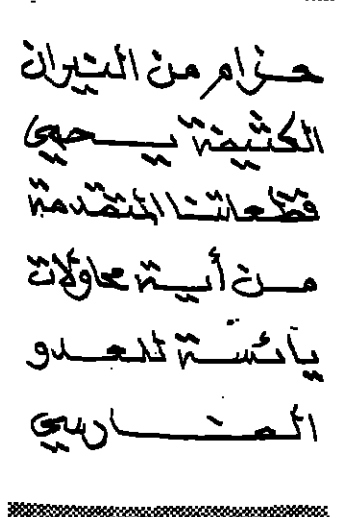 حزام من النيران
الكثيفة يحمي
قطعاتنا المتقدمة
من أية محاولات
يائسة للعدو
الفارسي